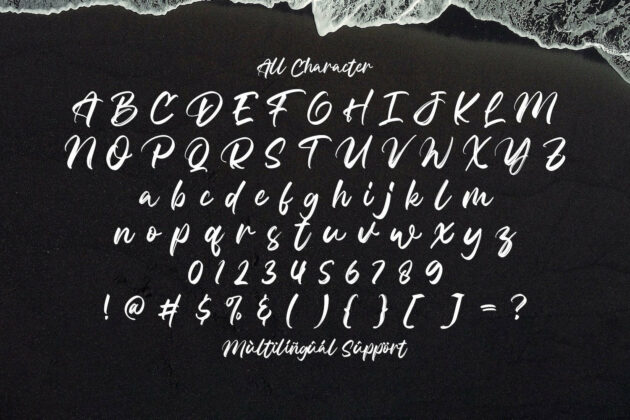 All Character
A B C D E F G H I J K L M
N O P Q R S T U V W X Y Z
a b c d e f g h i j k l m
n o p q r s t u v w x y z
0 1 2 3 4 5 6 7 8 9
! @ # $ % & ( ) { } [ ] = ?
Mùltilíñgúâl Sûppört